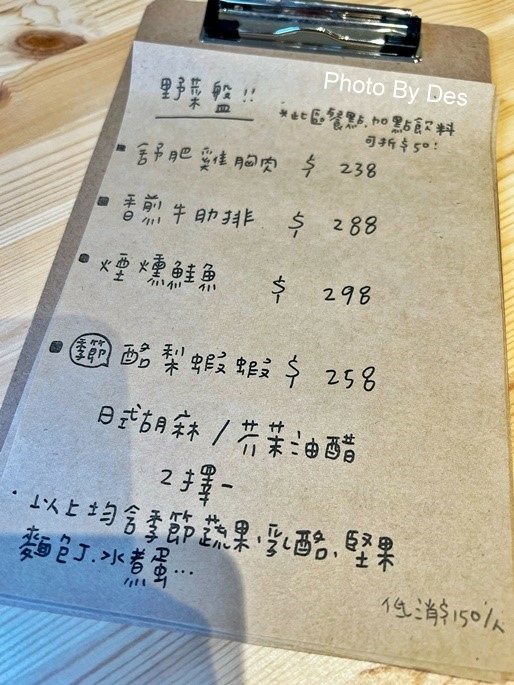 Photo By Des
野菜盤!!
*此區餐點.加點飲料
可折$50!
舒肥雞胸肉 $ 238
香煎牛肋排 $ 288
煙燻鮭魚 $ 298
季節 酪梨蝦蝦 $ 258
日式胡麻 / 芥茉油醋
2擇一
·以上均含季節蔬果.乳酪.堅果
麵包丁.水煮蛋...
低消$150/人